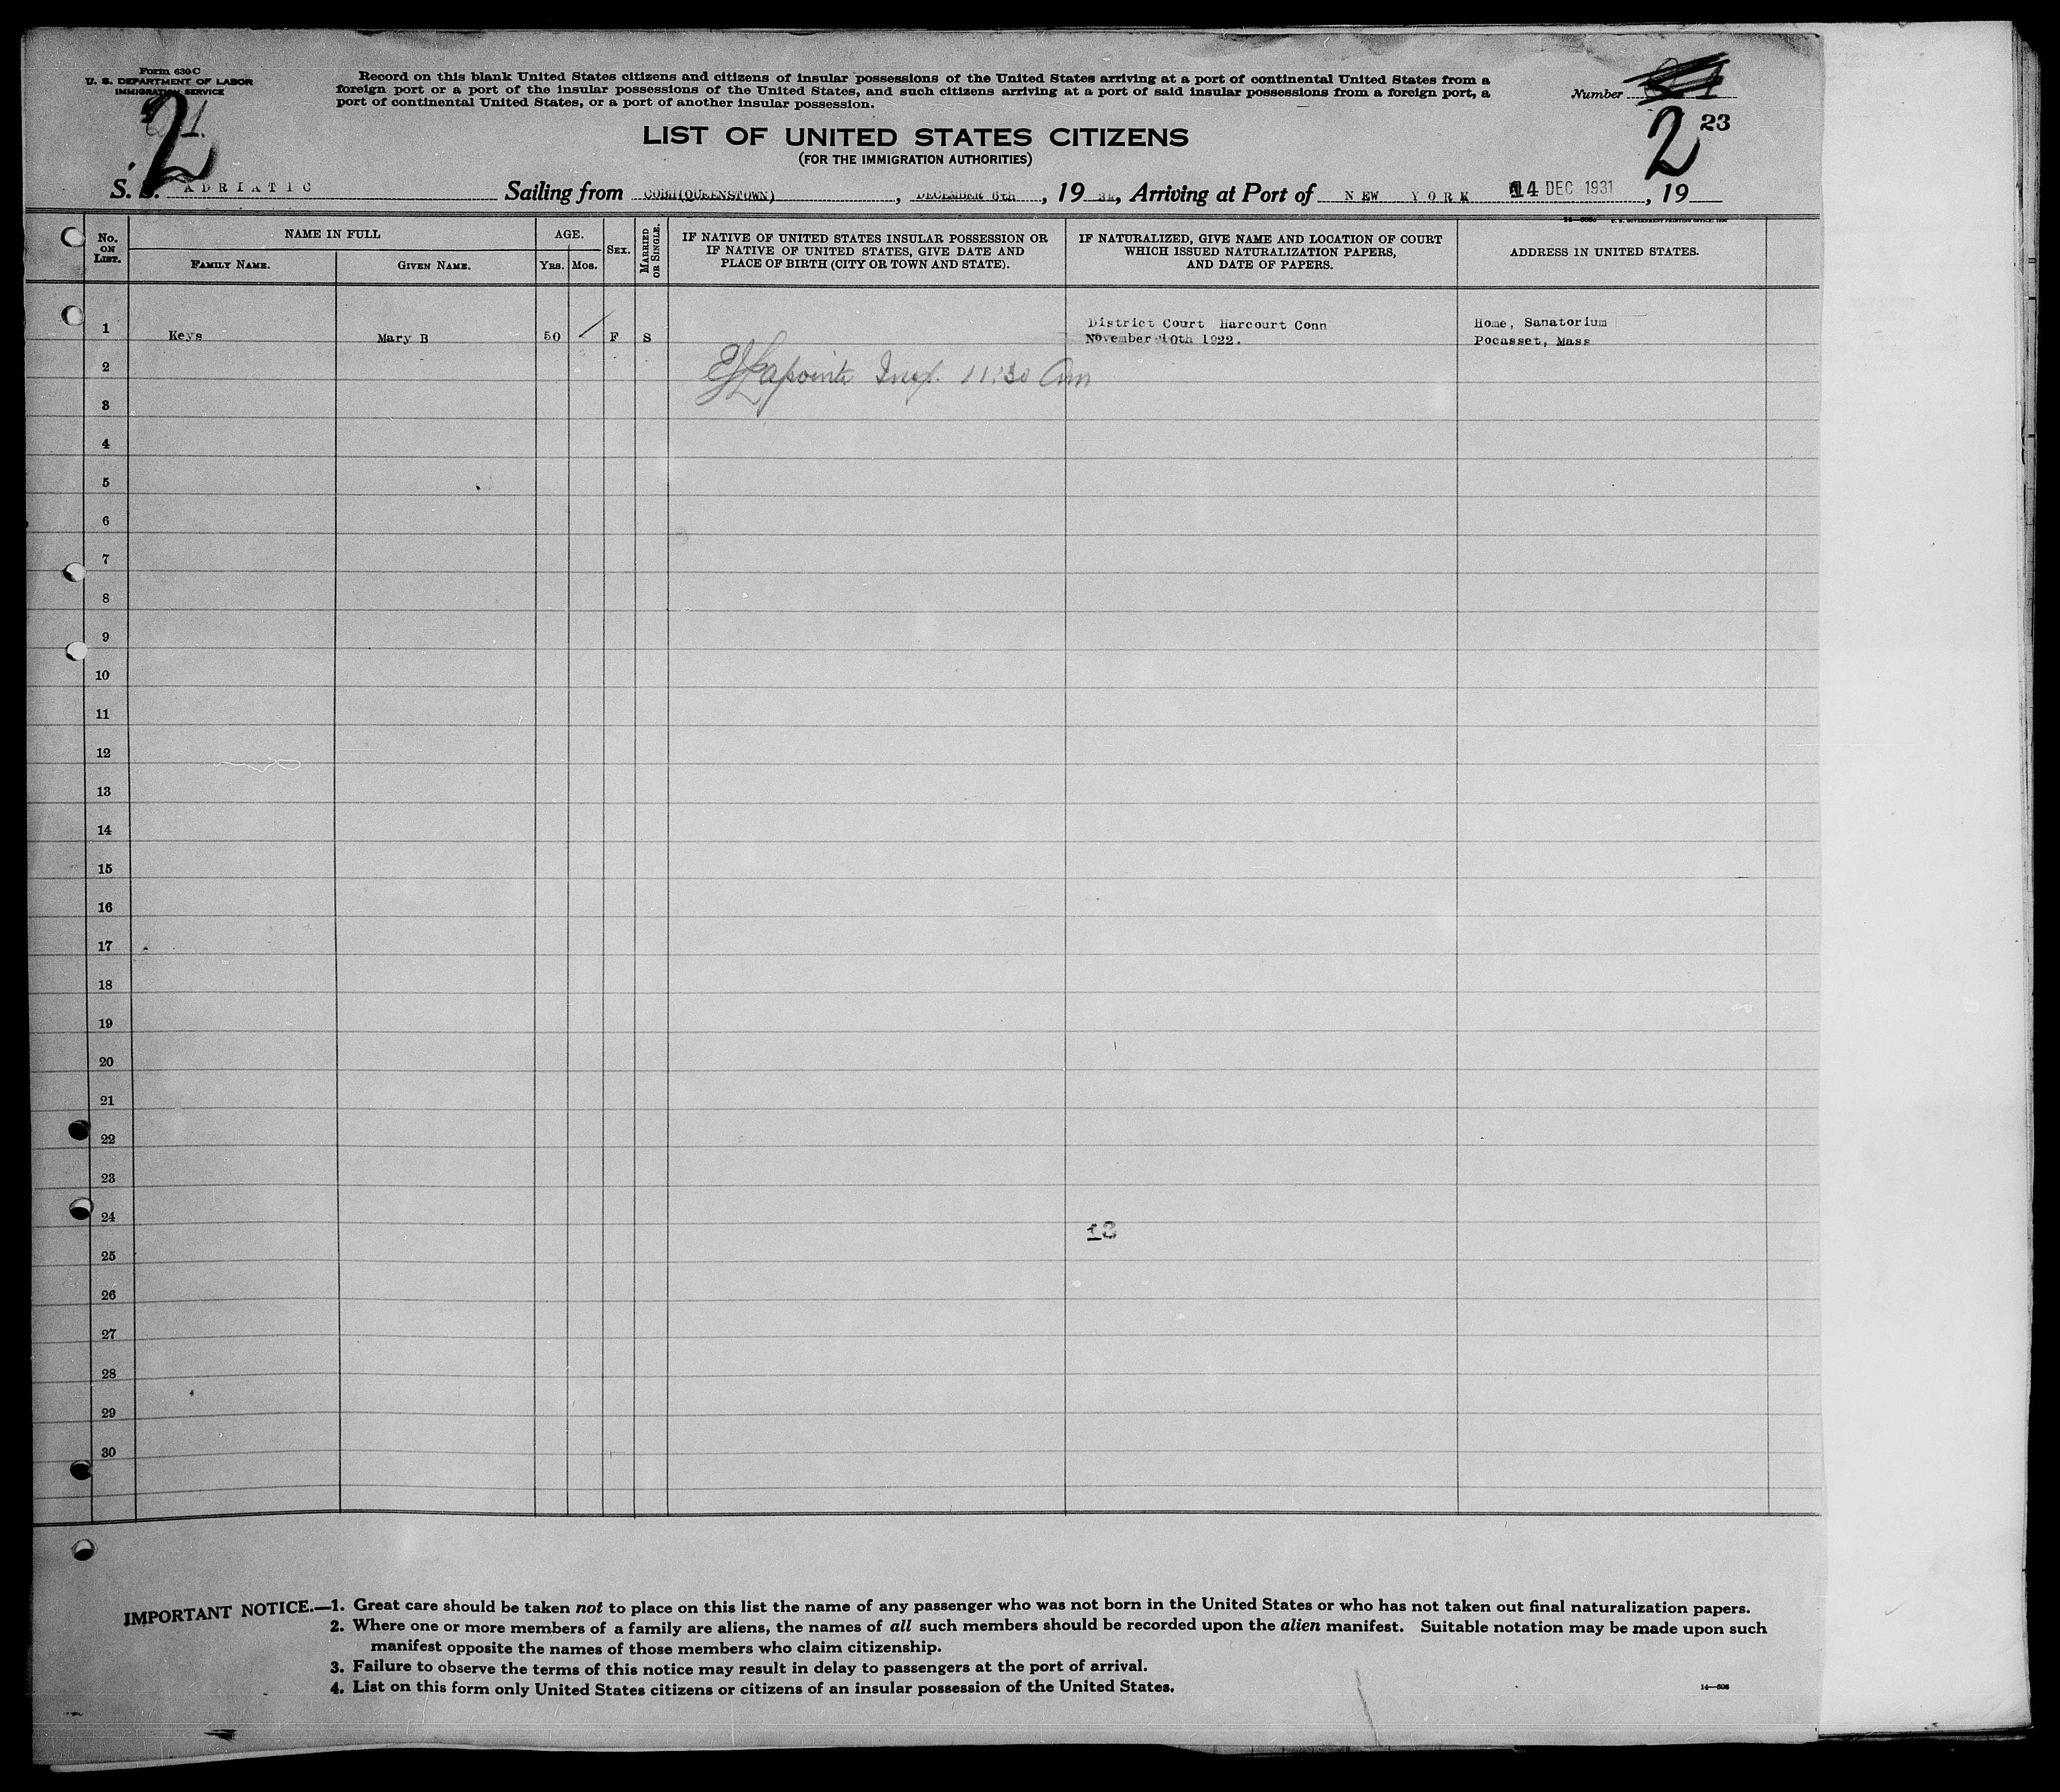 Form 630 C
U. S. DEPARTMENT OF LABOR
IMMIGRATION SERVICE
Record on this blank United States citizens and citizens of insular possessions of the United States arriving at a port of continental United States from a
foreign port or a port of the insular possessions of the United States, and such citizens arriving at a port of said insular possessions from a foreign port, a
port of continental United States, or a port of another insular possession.
Number
2
2
23
LIST OF UNITED STATES CITIZENS
(FOR THE IMMIGRATION AUTHORITIES)
S. S. ADRIATIC Sailing from COBH(QUEENSTOWN), DECEMBER 6th, 19 31, Arriving at Port of NEW YORK 14 DEC 1931, 19
No. ON LIST.
NAME IN FULL
FAMILY NAME.
GIVEN NAME.
AGE.
YRS.
MOS.
SEX.
MARRIED OR SINGLE.
IF NATIVE OF UNITED STATES INSULAR POSSESSION OR
IF NATIVE OF UNITED STATES, GIVE DATE AND
PLACE OF BIRTH (CITY OR TOWN AND STATE).
IF NATURALIZED, GIVE NAME AND LOCATION OF COURT
WHICH ISSUED NATURALIZATION PAPERS,
AND DATE OF PAPERS.
ADDRESS IN UNITED STATES.
1 Keys Mary B 50 F S
District Court Harcourt Conn
November 10th 1922.
Home, Sanatorium
Pocasset, Mass
2
Lapointe Insp. 11:30 Am
3
4
5
6
7
8
9
10
11
12
13
14
15
16
17
18
19
20
21
22
23
24
18
25
26
27
28
29
30
IMPORTANT NOTICE.—1. Great care should be taken not to place on this list the name of any passenger who was not born in the United States or who has not taken out final naturalization papers.
2. Where one or more members of a family are aliens, the names of all such members should be recorded upon the alien manifest. Suitable notation may be made upon such
manifest opposite the names of those members who claim citizenship.
3. Failure to observe the terms of this notice may result in delay to passengers at the port of arrival.
4. List on this form only United States citizens or citizens of an insular possession of the United States.